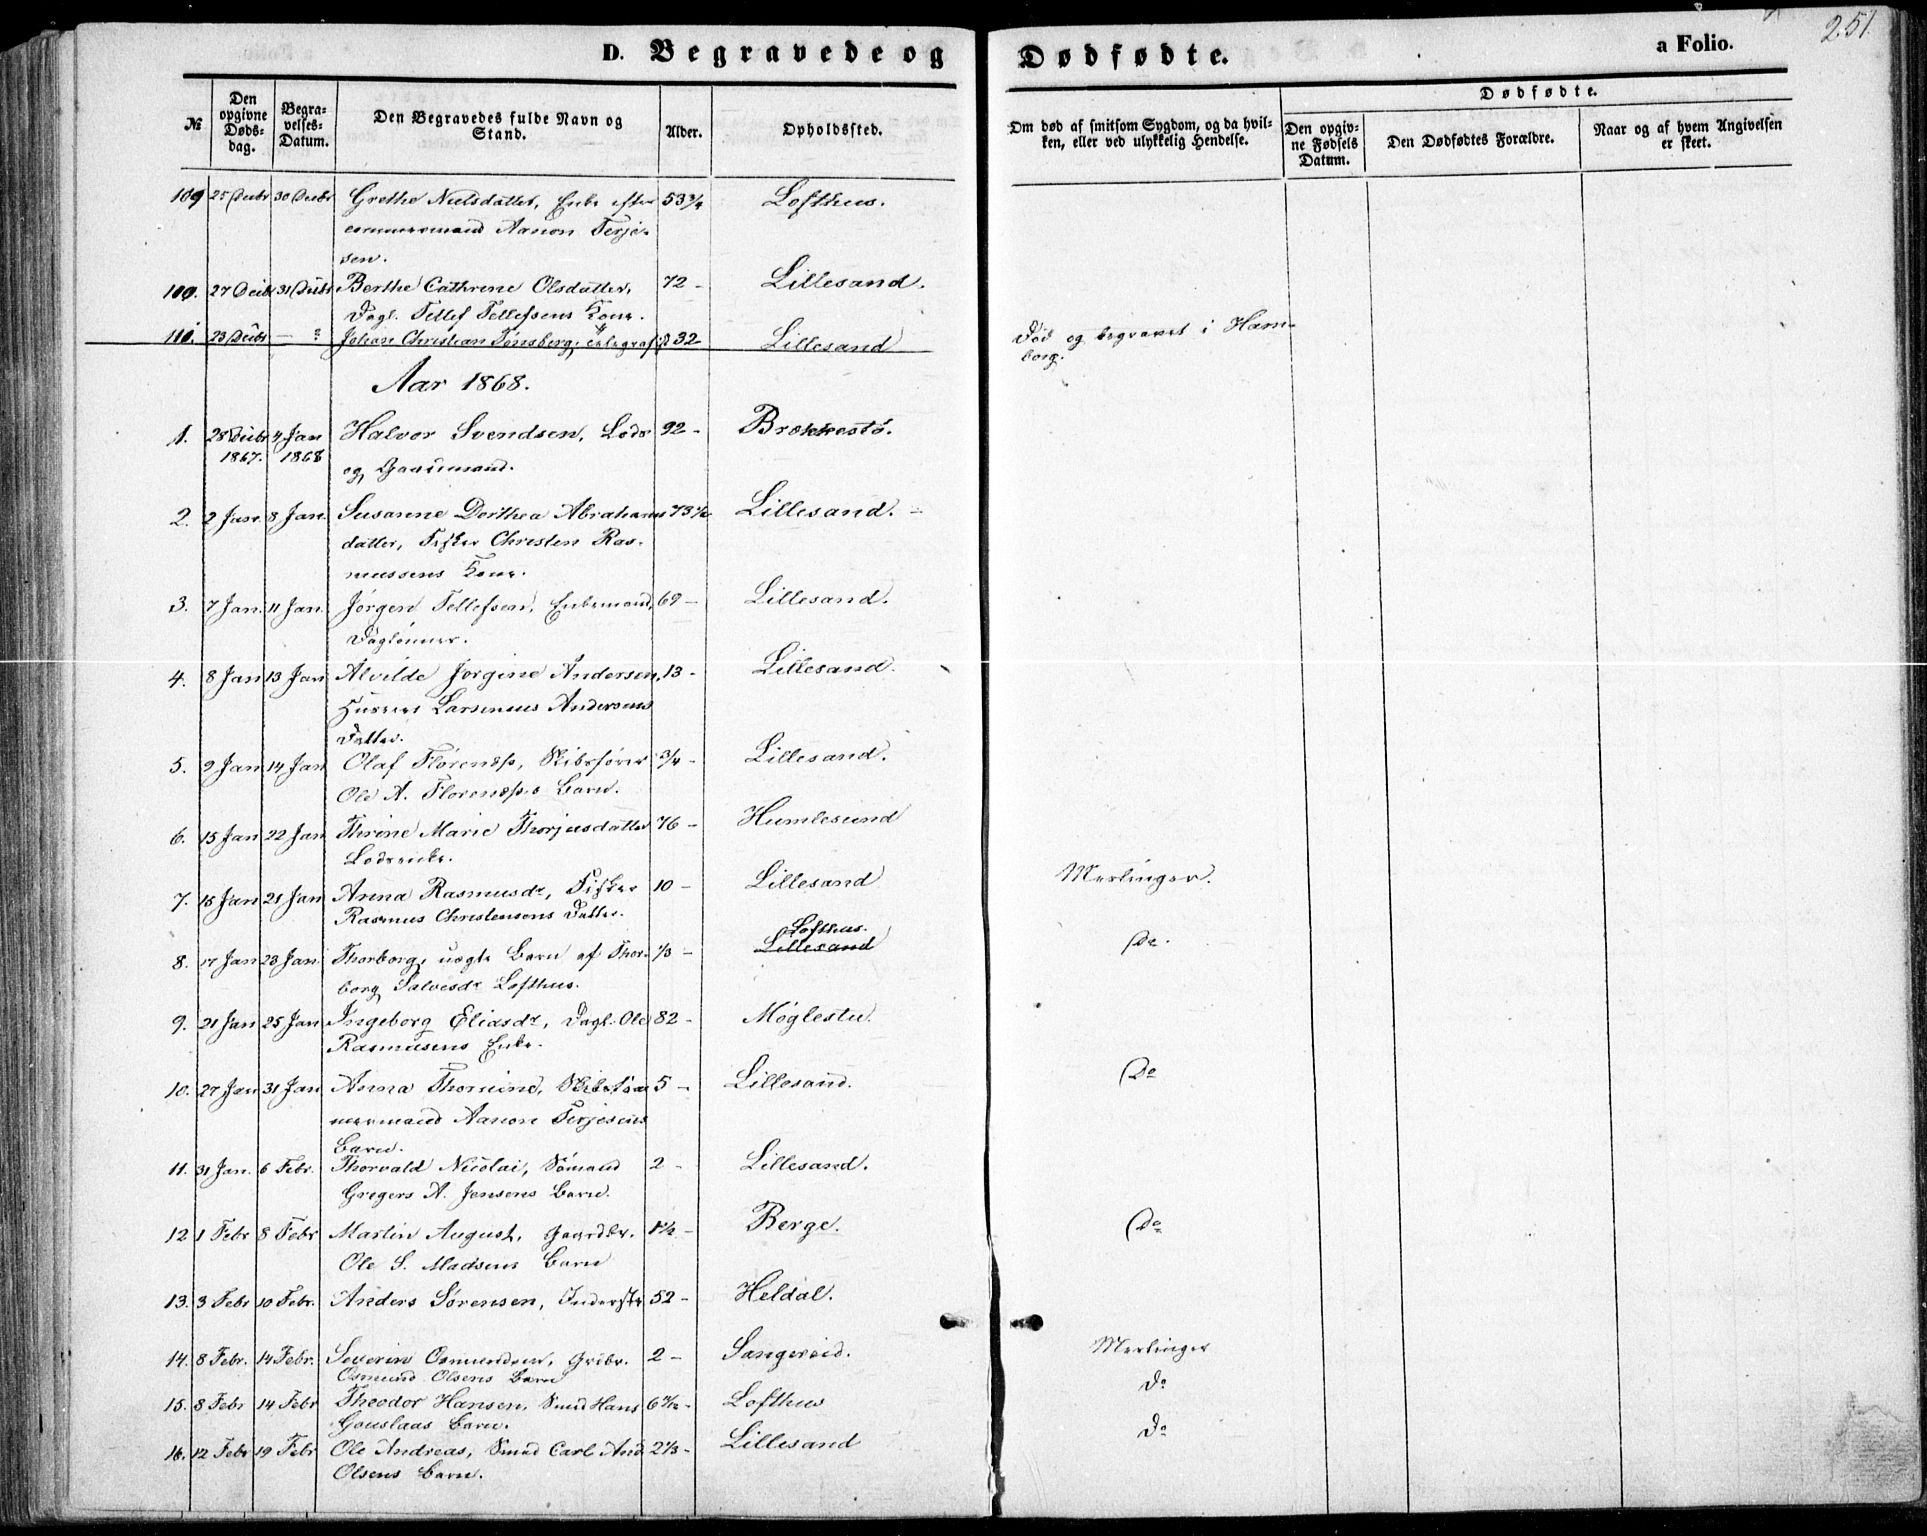 251.
D. Begravede og Dødfødte. a Folio.
№
Den opgivne Døds-dag.
Begra-velses-Datum.
Den Begravedes fulde Navn og Stand.
Alder.
Opholdssted.
Om død af smitsom Sygdom, og da hvil-ken, eller ved ulykkelig Hendelse.
Dødfødte.
Den opgiv-ne Fødsels Datum.
Den Dødfødtes Forældre.
Naar og af hvem Angivelsen er skeet.
109 25 Decbr 30 Decbr Grethe Nielsdatter, Enke efter 53 3/4 Lofthus.
Aanon Terje-
sen.
27 Decbr 31 Decbr Berthe Cathrine Olsdatter, 72 - Lillesand.
Dagl. Tellef Tellefsens Kone.
110. 23 Decbr — ? Johan Christian Tønsberg, 32 Lillesand Død og begravet i Ham-
borg.
Aar 1868.
1. 28 Decbr 4 Jan Halvor Svendsen, Lods 92 - Brækkestø.
1867. 1868 og Gaardmand.
2. 2 Jan. 8 Jan. Susanne Dorthea Abrahams 73 1/2 Lillesand. -
datter, Fisker Christen Ras-
mussens Kone.
3. 7 Jan. 11 Jan. Jørgen Tellefsen, Enkemand, 69 - Lillesand.
Dagleiner.
4. 8 Jan 13 Jan Alvilde Jørgine Andersen, 13 - Lillesand.
Larsenius Andersens
Datter.
5. 9 Jan 14 Jan Olaf Florendss, Skibsfører 3/4 - Lillesand.
Ole A. Florendss.s Barn.
6. 15 Jan 22 Jan Thrine Marie Thorjusdatter 76 - Humlesund
Lodsenke.
7. 15 Jan 21 Jan Anna Rasmusdr, Fisker 10 - Lillesand Meslinger.
Rasmus Christensens Datter.
Lofthus.
8. 17 Jan 23 Jan. Thorborg, uægte Barn af Thor- 1/3 - Lillesand Do.
borg Salvesdr Lofthus.
9. 21 Jan 25 Jan Ingeborg Eliasdr, Dagl. Ole 82 - Møglestu.
Rasmusens Enke.
10. 27 Jan 31 Jan Anna Thomine, Skibstøm 5 - Lillesand. Do
mermand Aanon Terjesens
Barn.
11. 31 Jan. 6 Febr. Thorvald Nicolai, Sømand 2 - Lillesand.
Gregers A. Jensens Barn.
12 1 Febr 8 Febr Martin August, Gaardbr. 1 1/2 - Berge. Do
Ole S. Madsens Barn
13. 3 Febr 10 Febr. Anders Sørensen, Inderste 52 - Heldal.
14. 8 Febr. 14 Febr. Severin Osmundsen, Grdbr. 2 - Sangereid. Meslinger
Osmund Olsens Barn
15. 8 Febr 14 Febr Theodor Hansen, Smed Hans 6 Lofthus Do
Gauslaas Barn.
16. 12 Febr 19 Febr Ole Andreas, Smed Carl And. 2 1/3 - Lillesand Do
Olsens Barn.